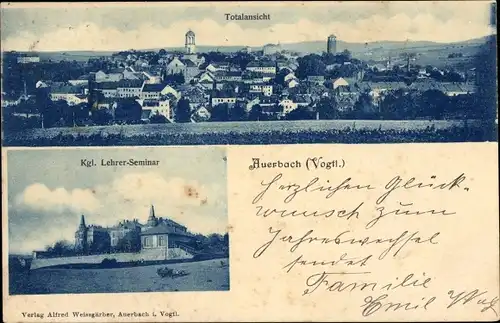 Totalansicht
Kgl. Lehrer-Seminar
Auerbach (Vogtl.)
Herzlichen Glück-
wunsch zum
Jahreswechsel
sendet
Familie
Emil
Verlag Alfred Weissgärber, Auerbach i. Vogtl.